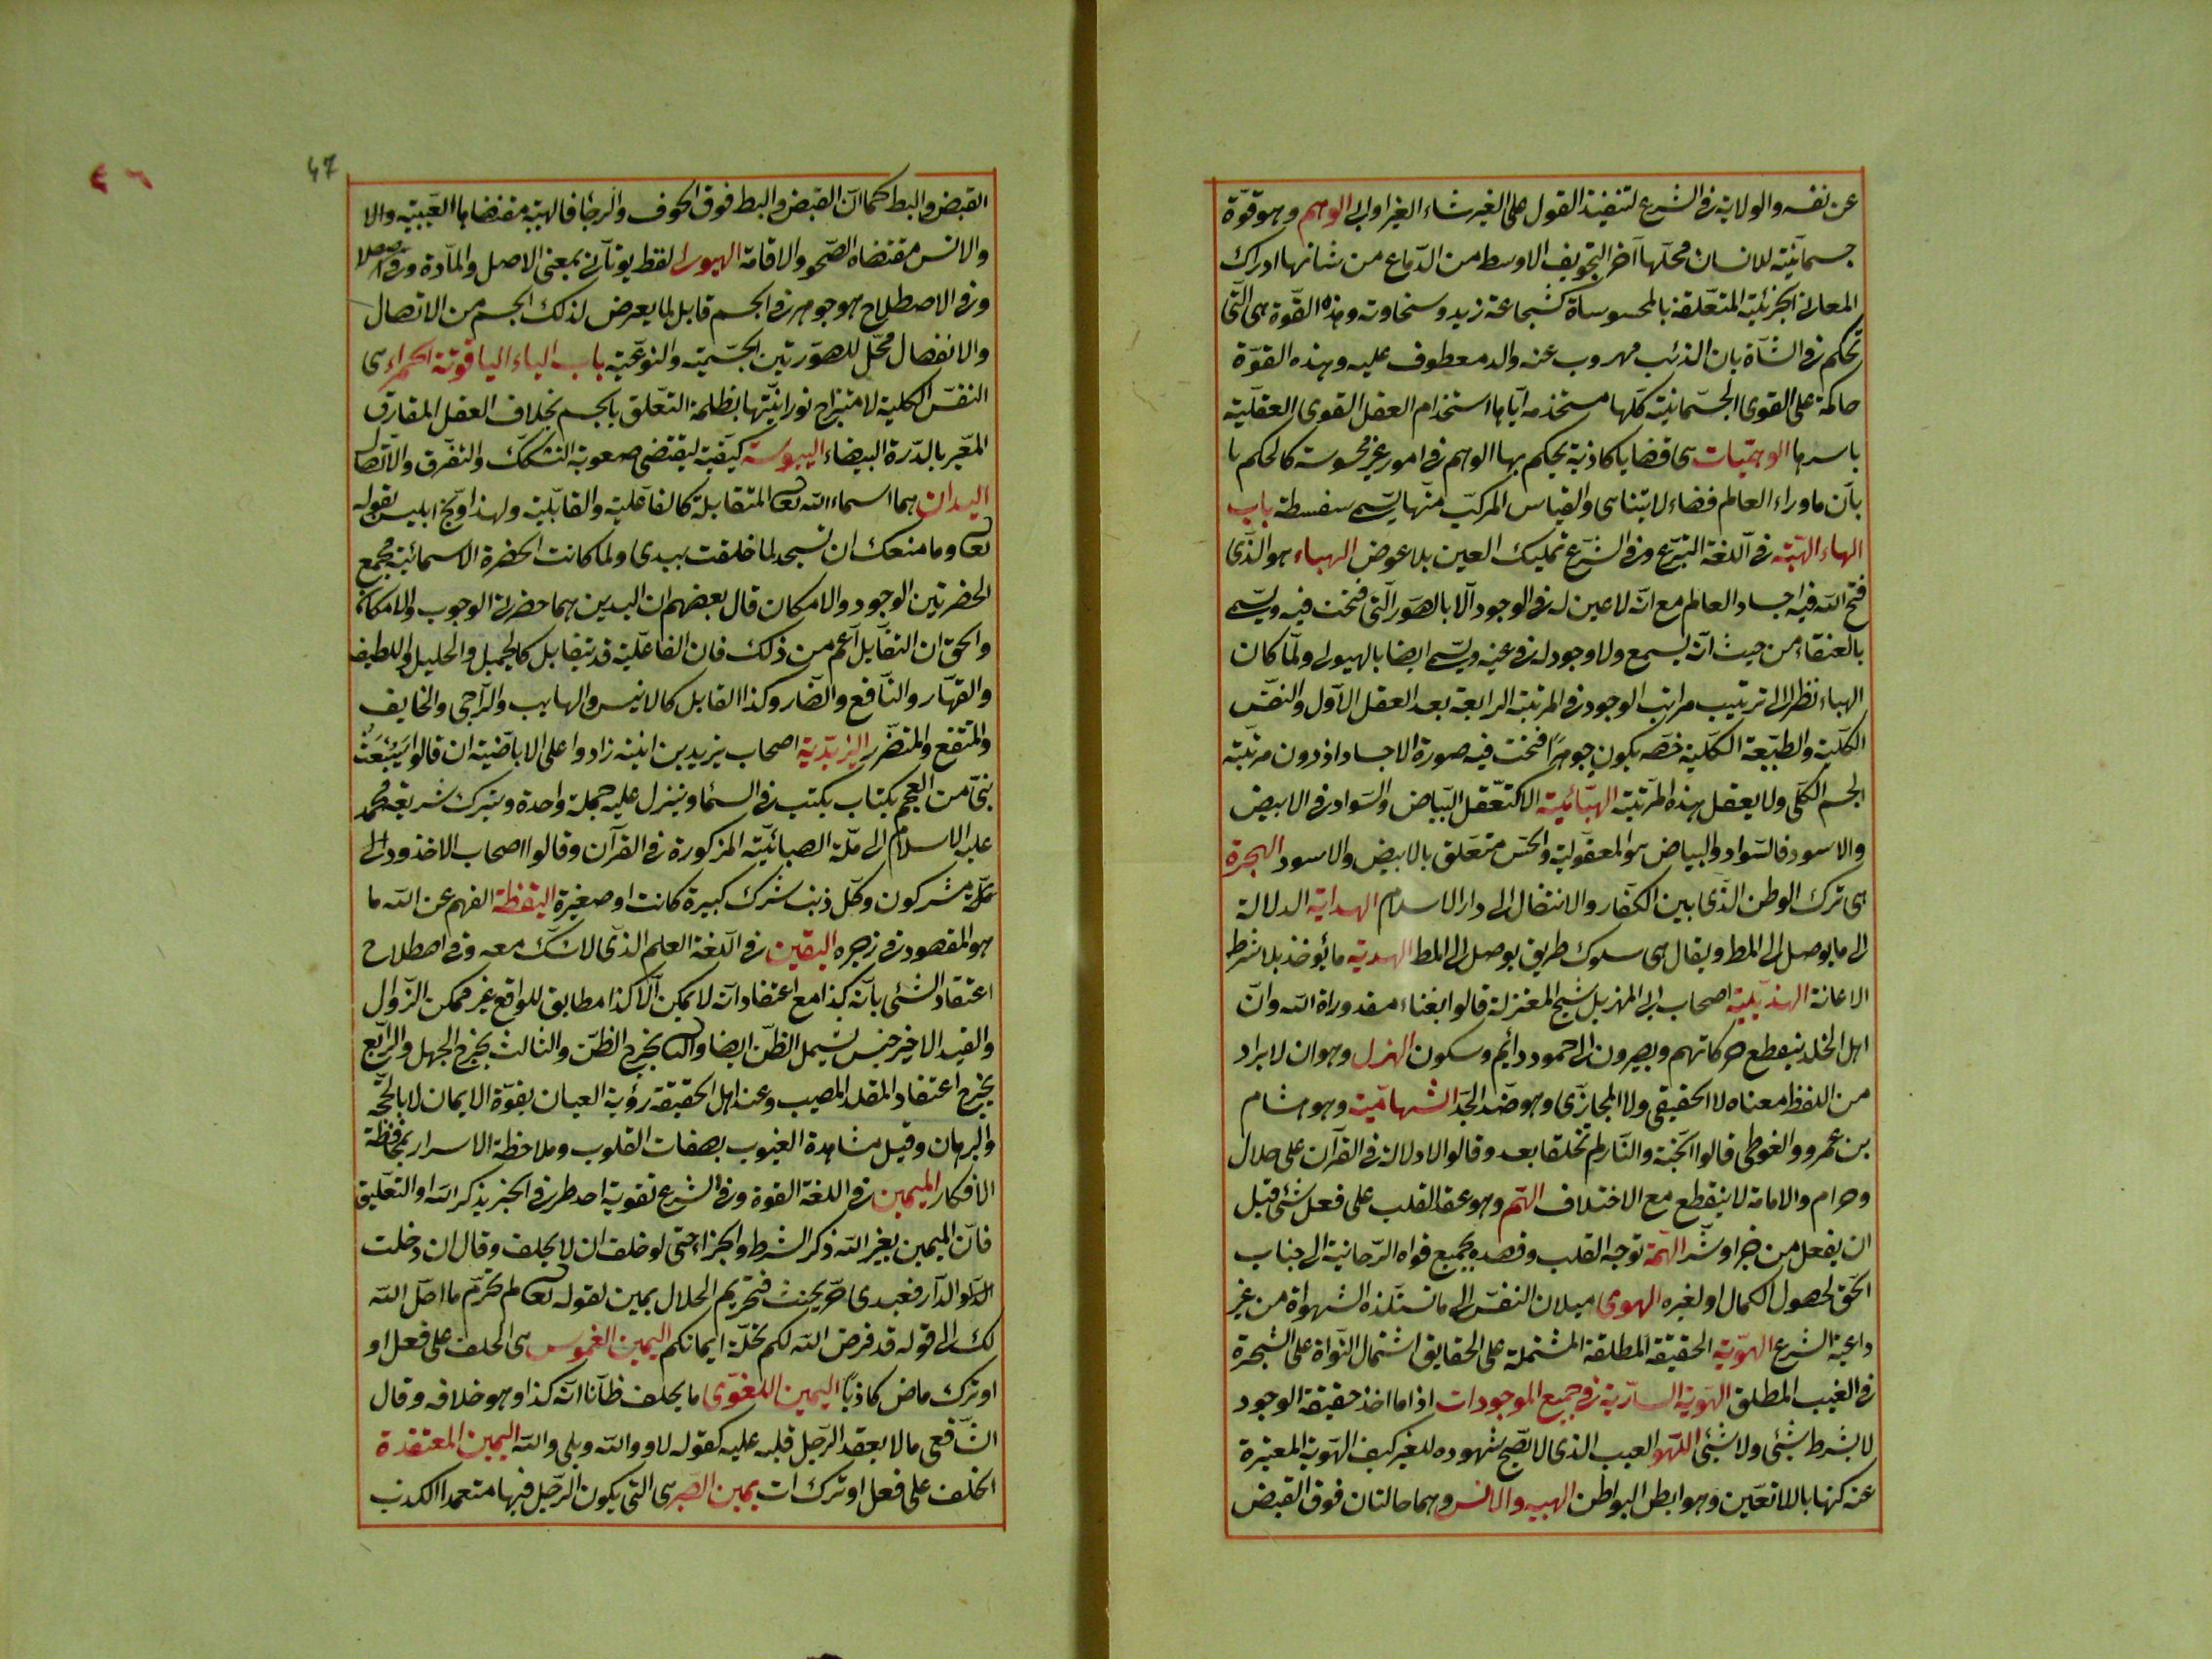 عن نفسه والولاية فى الشرع لتنفيذ القول على الغير شاء الغير او ابى الوهم وهو قوّة
جسمانيّة للانسان محلّها آخر التجويف الاوسط من الدّماغ من شانها ادراك
المعانى الجزئية المتعّلقة بالمحسوساة كشجاعة زيد وسخاوته وهذه القوّة هى الّتى
تحكم فى الشاة بان الذئب مهروب عنه والد معطوف عليه وهذه القوّة
حاكمة على القوى الجسّمانيّة كلّها مستخذمه ايّاها استخدام العقل القوى العقليّة
باسرها الوهميّات هى قضايا كاذبة يحكم بها الوهم فى امور غير محسوسة كالحكم با
بانّ ماوراء العالم فضاء لا يتناهى والقياس المركبّ منّها يسّمى سفسطة باب
الهاء الهبّة فى اللّغة التبرّع وفى الشرّع تمليك العين بلا عوض الهباء هو الذّى
فتح الله فيه اجساد العالم مع انّه لا عين له فى الوجود الّا بالصّور الّتى فتحت فيه ويسّمى
بالعنقاء من حيث انّه يسمع ولا وجود له فى عينه ويسّمى ايضا بالهيولى ولمّا كان
الهباء نظرا الى ترتيب مراتب الوجود فى المرتبة الرابعة بعد العقل الاوّل والنفس
الكليّة والطبيّعة الكليّة خصّه بكون جوهرًا فتحت فيه صورة الاجساد اذ دون مرتبّته
الجسم الكلّى ولا يعقل هذه المرتبّة الهبّائيّة الا كتعّقل البّياض والسّواد فى الابيض
والاسود فالسّواد والبياض هو المعقوليّة والحسّ متعّلق بالابيض والاسود الهجرة
هى ترك الوطن الذّى بين الكفّار والانتقال الى دار الاسلام الهداية الدلالة
الى ما يوصل الى المط ويقال هى سلوك طريق يوصل الى المط الهدية ما يؤخذ بلا شرط
الاعانة الهذيليّة اصحاب ابى الهزيل شيخ المعتزلة قالوا بفناء مقدوراة الله وانّ
اهل الخلد ينقطع حركاتهم ويصيرون الى خمود دائم وسكون الهزل وهو ان لا يراد
من اللفظ معناه لا الحقيقى ولا المجازّى وهو ضّد الجدّ الشهاميّة وهو هشام
بن عمرو والغوطى قالوا الجّنة والنّار لم تخلقا بعد وقالوا لا دلالة فى القرآن على حلال
وحرام والامامة لا ينقطع مع الاختلاف الهمّ وهو عقد القلب على فعل شئى قبل
ان يفعل من خير او شّر الهمّة توجه القلب وقصده بجميع قواه الرّحانية الى جناب
الحّق لحصول الكمال او لغيره الهوى ميلان النفسّ الى ما تستلّذه الشهواة من غير
داعية الشرع الهوّية الحقيقة المطلقة المشتملة على الحقايق اشتمال النّواة على الشجرة
فى الغيب المطلق الهوّية السارّية فى جميع الموجودات اذا ما اخذ حقيقة الوجود
لا بشرط شئى ولا شئى اللّهو العيب الذى لا تصّح شهوده للغير كيف الهّوية المعتبرة
عنه كنها باللاتعيّن وهو ابطن البواطن الهيبه والانس وهما حالتان فوق القبض
47
القبض والبط كما انّ القبض والبط فوق الخوف والرجاء فالهيبّة مقتضاها الغيبيّه والا
والانس مقتضاه الصّحو والاقامة الهيولى لفظ يونآنى بمعنى الاصل والمادّة وفى الاصطلا
وفى الاصطلاح هو جوهر فى الجسم قابل لما يعرض لذلك الجسم من الاتصال
والانفصال محّل للصوّرتين الجسّمية والنوعيّة باب الياء الياقوتة الحمراء هى
النفسّ الكلية لامتزاج نورانيّتها بظلمة التعّلق بالجسم بخلاف العقل المفارق
المعّبر بالدّرة البيضاء اليبوسة كيفّية ليقتضى صعوبة التشكّك والتفرّق والاتّصا
اليدان هما اسماء الله تعا المتقابلة كالفاعّلية والقابليّة ولهذا وّبخ ابليس بقوله
تعا وما منعك ان تسجد لما خلقت بيدى ولما كانت الحضرة الاسمائيّة مجمع
الحضرتين الوجود والامكان قال بعضهم ان اليدين هما حضرتا الوجوب والامكان
والحق ان التقّابل اعّم من ذلك فان الفاعلّية قد تتقابل كالجميل والجليل واللطيف
والقهّار والنّافع والضّار وكذا القابل كالانيس والهايب والرّاجى والخايف
والمتقع والمتضرّر اليزيدّية اصحاب يزيد بن انيسة زادوا على الاباضّية ان قالوا سَيُبْعَث
نبىّ من العجم بكتاب يكتب فى السمّاء وينزل عليه جملة واحدة ويترك شريعة محمد
عليه الاسلام الى ملّة الصبائيّة المزكورة فى القرآن وقالوا اصحاب الاخذود الى
كلّة مشركون وكّل ذنب شرك كبيرة كانت او صغيرة اليقظة الفهم عن الله ما
هو المقصود فى زجره اليقين فى اللّغة العلم الذّى لا شّك معه وفى اصطلاح
اعتقاد الشئى بانّه كذا مع اعتقاد انّه لا يمكن الّا كذا مطابق للواقع غير ممكن الزّوال
والقيد الاخير جنس يشمل الظّن ايضا والثا يخرج الظّن والثالث يخرج الجهل والرّابع
يخرج اعتقاد المقلد المصيب وعند اهل الحقيقة رؤية العيان بقوّة الايمان لا بالحّجة
والبرهان وقيل مشاهدة الغيوب بصفات القلوب وملاحظة الاسرار بمحافظة
الافكار الميمين فى اللغة القوة وفى الشرع تقوية احد طرفى الخبر بذكر الله او التعّليق
فانّ اليمين بغير الله ذكر الشرط والجزاء حتى لو حلف ان لا يحلف وقال ان دخلت
الّدار فعبدى حّر يحنث فتحريم الحلال يمين لقوله تعا لم تحرّم ما احّل الله
لك الى قوله قد فرض الله لكم تحلّة ايمانكم اليمين الغموس هى الحلف على فعل او
او ترك ماض كاذبًا اليمين اللغّوى ما يحلف ظّآنا انّه كذا وهو خلافه وقال
الشّافعى ما لا يعقد الرّجل قلبه عليه كقوله لا والله وبلى والله اليمين المعتقدة
الحلف على فعل او ترك ات يمين الصّبر هى التى يكون الرّجل فيها متعمدا الكذب